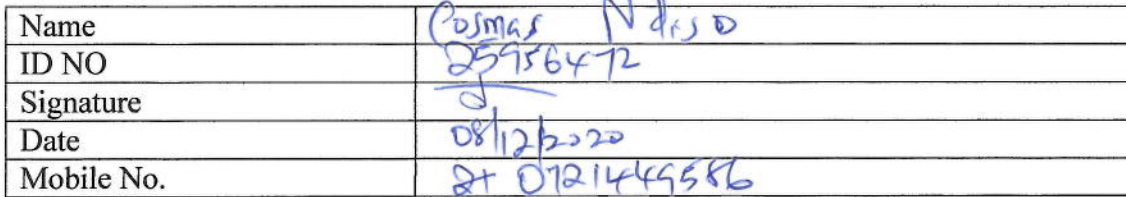 Name Cosmas Ndiso
ID NO 25956472
Signature
Date 08/12/2020
Mobile No. 0721449586